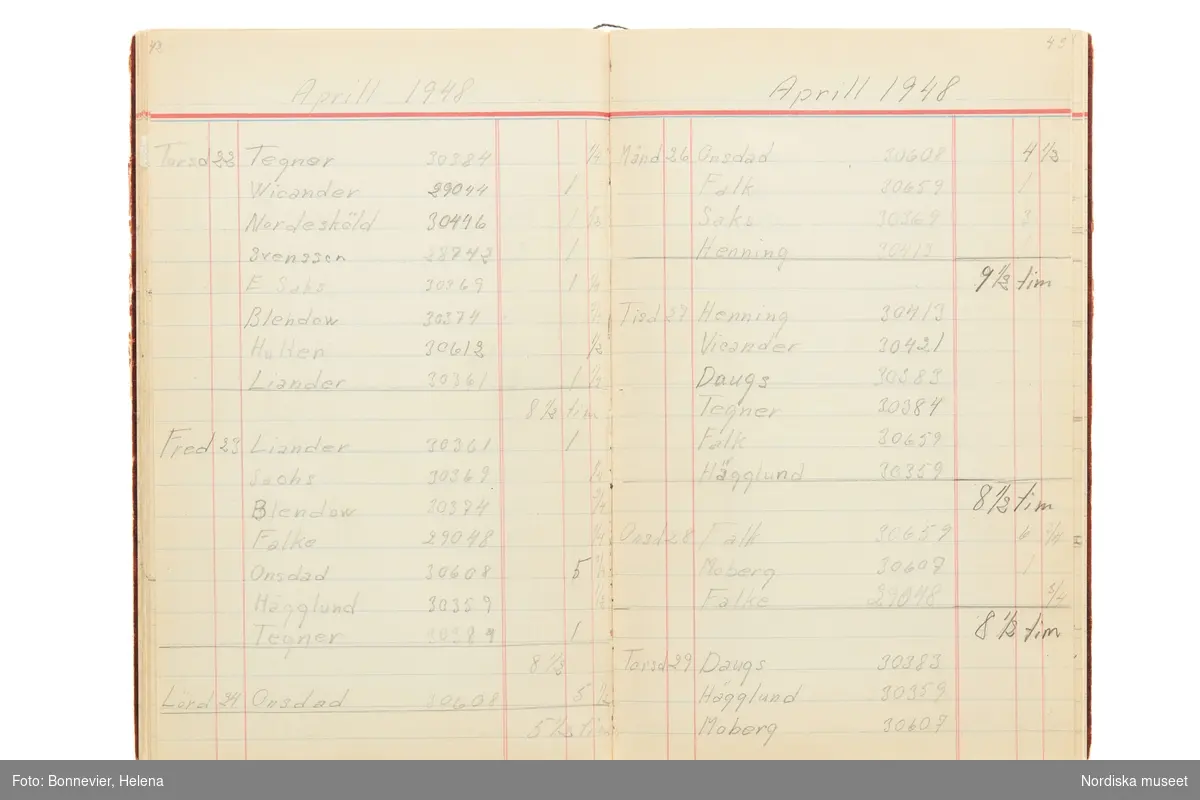 42
Aprill 1948
Torsd 22 Tegner 30384 1/4
Wicander 29044 1
Nordesköld 30446 1 1/2
Svensson 28742 1
E Saks 30369 1 1/4
Blendow 30374
Hutten 30612 1/2
Liander 30361 1 1/2
8 1/2 tim
Fred 23 Liander 30361 1
Sachs 30369
Blendow 30374
Falke 29048
Onsdad 30608 5
Hägglund 30359
Tegner 30384 1
8 1/2
Lörd 24 Onsdad 30608 5 1/2
5 1/2 tim
43
Aprill 1948
Månd 26 Onsdad 30608 4 1/2
Falk 30659 1
Saks 30369 3
Henning 30413
9 1/2 tim
Tisd 27 Henning 30413
Vicander 30421
Daugs 30383
Tegner 30384
Falk 30659
Hägglund 30359
8 1/2 tim
Onsd 28 Falk 30659 6 3/4
Moberg 30607 1
Falke 29048 3/4
8 1/2 tim
Torsd 29 Daugs 30383
Hägglund 30359
Moberg 30607
Foto: Bonnevier, Helena
Nordiska museet